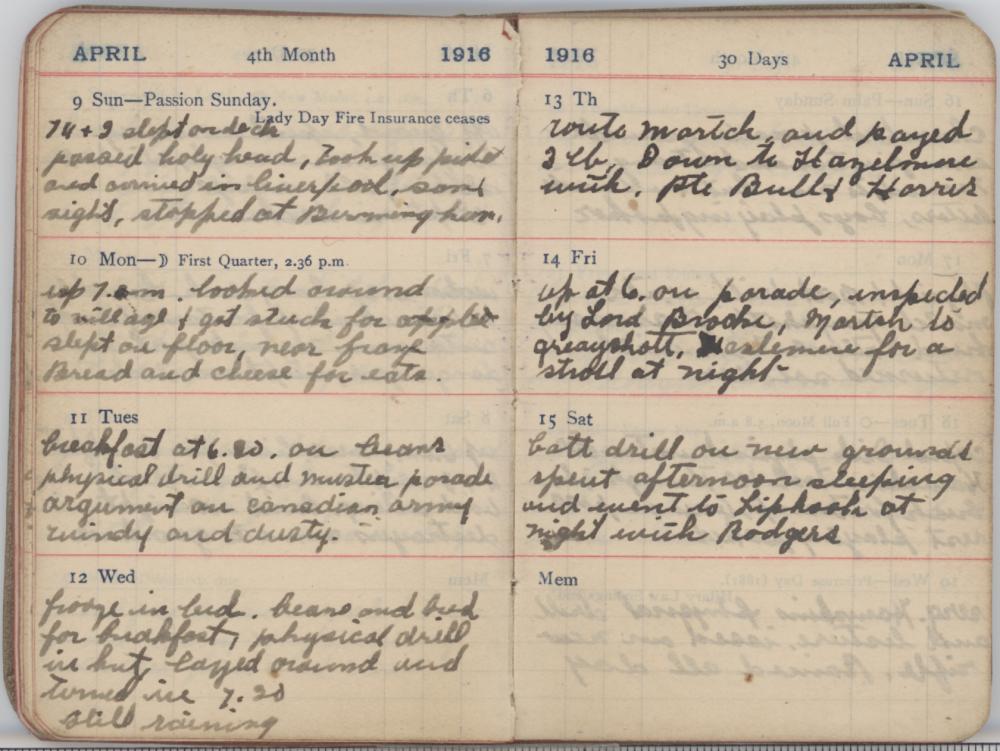 APRIL 4th Month 1916
9 Sun—Passion Sunday.
Lady Day Fire Insurance ceases
slept on deck
passed holy head, took up pilot
and arrived in liverpool, same
night, stopped at Burmingham,
10 Mon—☽ First Quarter, 2.36 p.m.
up 7. am. looked around
to village & got stuck for apples
slept on floor, near froze
Bread and cheese for eats.
11 Tues
breakfast at 6.30. on beans
physical drill and muster parade
argument on canadian army
windy and dusty.
12 Wed
froze in bed. beans and bread
for breakfast, physical drill
in hut, layed around and
turned in 7.30
still raining
1916 30 Days APRIL
13 Th
route martch, and payed
2 lb, Down to Hazelmere
with. Pte Bull & Harris
14 Fri
up at 6. on parade, inspected
by Lord Brooke, Martch to
greayshott, Haslemere for a
stroll at night
15 Sat
batt drill on new grounds
spent afternoon sleeping
and went to Liphook at
night with Rodgers
Mem